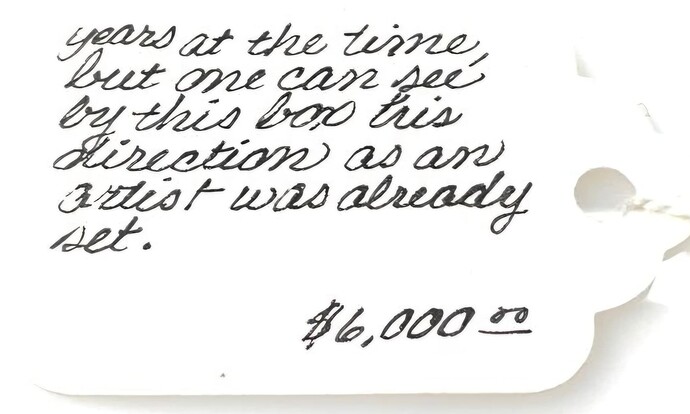 years at the time,
but one can see
by this box his
direction as an
artist was already
set.
$6,000 00